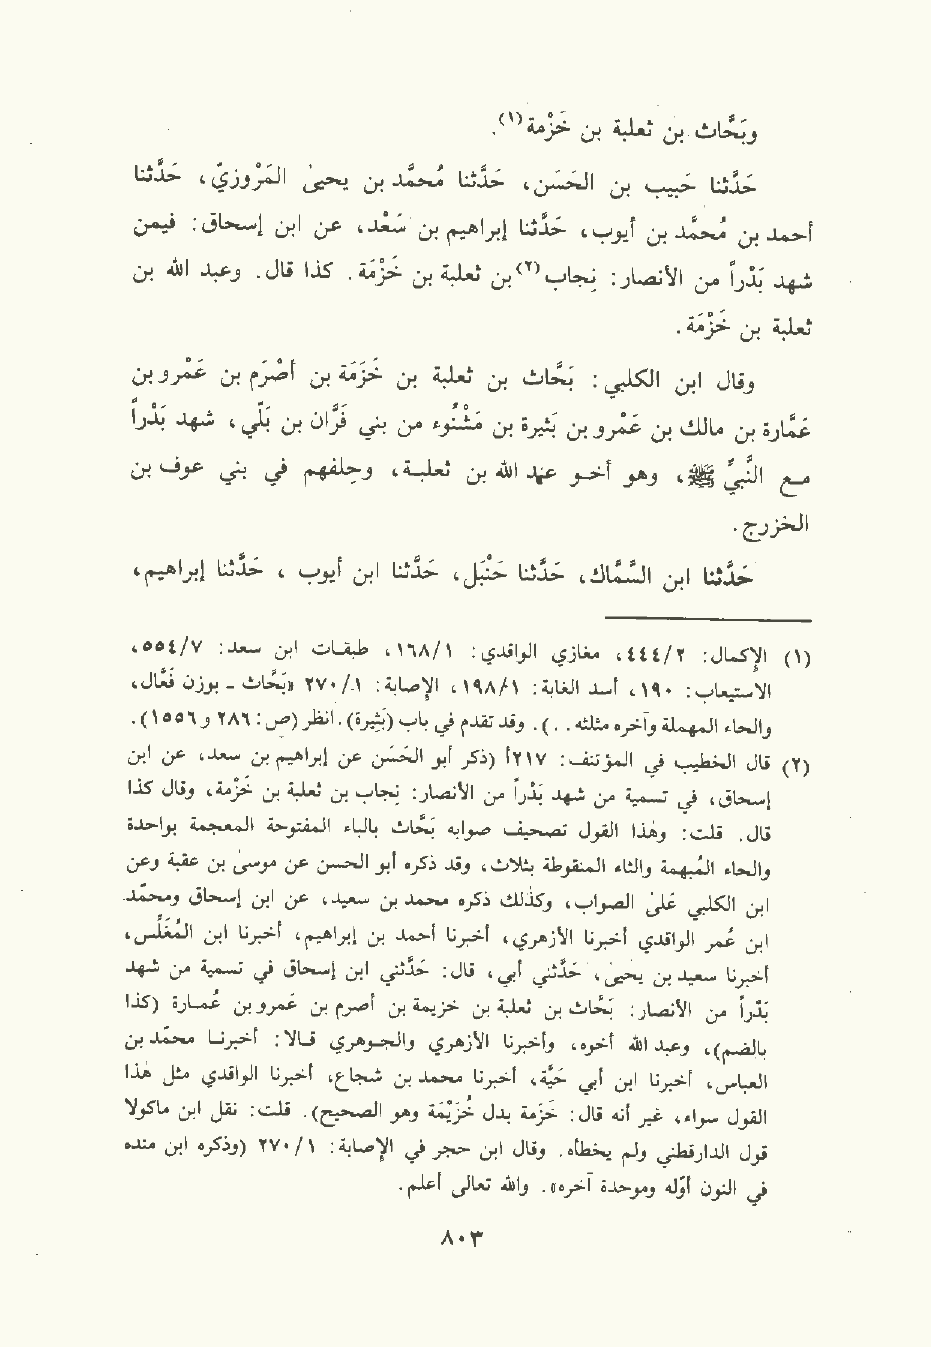 وبَحَّاث بن ثعلبة بن خَزْمة(١).
حَدَّثنا حَبيب بن الحَسَن، حَدَّثنا مُحمَّد بن يحيىٰ المَرْوزيّ، حَدَّثنا
أحمد بن مُحمَّد بن أيوب، حَدَّثنا إبراهيم بن سَعْد، عن ابن إسحاق: فيمن
شهد بَدْراً من الأنصار: نِجاب(٢) بن ثعلبة بن خَزْمَة. كذا قال. وعبد الله بن
ثعلبة بن خَزْمَة.
وقال ابن الكلبي: بَحَّاث بن ثعلبة بن خَزَمَة بن أصْرَم بن عَمْرو بن
عَمَّارة بن مالك بن عَمْرو بن بَثِيرة بن مَشْنُوء من بني فَرَّان بن بَلّي، شهد بَدْراً
مع النَّبيِّ ﷺ، وهو أخو عبد الله بن ثعلبة، وحِلفهم في بني عوف بن
الخزرج.
حَدَّثنا ابن السَّمَّاك، حَدَّثنا حَنْبَل، حَدَّثنا ابن أيوب، حَدَّثنا إبراهيم،
(١) الإكمال: ٤٤٤/٢، مغازي الواقدي: ١٦٨/١، طبقات ابن سعد: ٥٥٤/٧،
الاستيعاب: ١٩٠، أسد الغابة: ١٩٨/١، الإصابة: ٢٧٠/١ «بَحَّاث - بوزن فَعَّال،
والحاء المهملة وآخره مثلثه...). وقد تقدم في باب (بَثِيرة). انظر (ص: ٢٨٦ و ١٥٥٦).
(٢) قال الخطيب في المؤتنف: ٢١٧أ (ذكر أبو الحَسَن عن إبراهيم بن سعد، عن ابن
إسحاق، في تسمية من شهد بَدْراً من الأنصار: نِجاب بن ثعلبة بن خَزْمَة، وقال كذا
قال. قلت: وهذا القول تصحيف صوابه بَحَّاث بالباء المفتوحة المعجمة بواحدة
والحاء المُبهمة والثاء المنقوطة بثلاث، وقد ذكره أبو الحسن عن موسىٰ بن عقبة وعن
ابن الكلبي علىٰ الصواب، وكذلك ذكره محمد بن سعيد، عن ابن إسحاق ومحمّد
ابن عُمر الواقدي أخبرنا الأزهري، أخبرنا أحمد بن إبراهيم، أخبرنا ابن المُغلِّس،
أخبرنا سعيد بن يحيىٰ، حَدَّثني أبي، قال: حَدَّثني ابن إسحاق في تسمية من شهد
بَدْراً من الأنصار: بَحَّاث بن ثعلبة بن خزيمة بن أصرم بن عمرو بن عُمارة (كذا
بالضم)، وعبد الله أخوه، وأخبرنا الأزهري والجوهري قالا: أخبرنا محمّد بن
العباس، أخبرنا ابن أبي حَيَّة، أخبرنا محمد بن شجاع، أخبرنا الواقدي مثل هذا
القول سواء، غير أنه قال: خَزَمة بدل خُزَيْمَة وهو الصحيح). قلت: نقل ابن ماكولا
قول الدارقطني ولم يخطأه. وقال ابن حجر في الإصابة: ٢٧٠/١ (وذكره ابن منده
في النون أوّله وموحدة آخره». والله تعالى أعلم.
٨٠٣